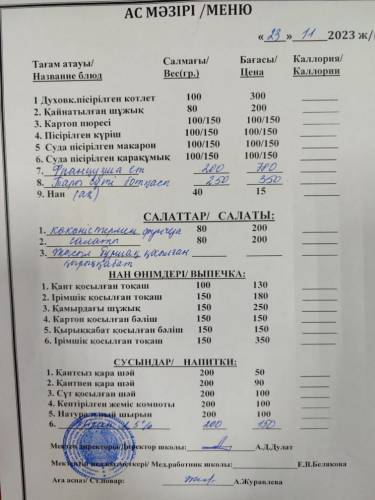 АС МӘЗІРІ /МЕНЮ
« 23 » 11 2023 ж/
Тағам атауы/ Салмағы/ Бағасы/ Каллория/
Название блюд Вес(гр.) Цена Каллории
1 Духовк.пісірілген котлет 100 300
2. Қайнатылған шұжық 80 200
3. Картоп пюресі 100/150 100/150
4. Пісірілген күріш 100/150 100/150
5 Суда пісірілген макарон 100/150 100/150
6. Суда пісірілген қарақұмық 100/150 100/150
7. Французша ет 200 700
8. 250 350
9. Нан (ақ) 40 15
САЛАТТАР/ САЛАТЫ:
1. көкөністермен фунчоза 80 200
2. салаты 80 200
3. бұршақ қосылған
қырыққабат
НАН ӨНІМДЕРІ/ ВЫПЕЧКА:
1. Қант қосылған тоқаш 100 130
2. Ірімшік қосылған тоқаш 150 180
3. Қамырдағы шұжық 150 250
4. Картоп қосылған бәліш 150 150
5. Қырыққабат қосылған бәліш 150 150
6. Ірімшік қосылған тоқаш 150 350
СУСЫНДАР/ НАПИТКИ:
1. Қантсыз қара шәй 200 50
2. Қантпен қара шәй 200 90
3. Сүт қосылған шәй 200 100
4. Кептірілген жеміс компоты 200 100
5. Натуральный шырын 200 100
6. 2,5% 200 150
Мектеп директоры/Директор школы: А.Д.Дулат
Мектептің медқызметкері/ Мед.работник школы: Е.В.Белякова
Аға аспаз/ Ст.повар: А.Журавлева